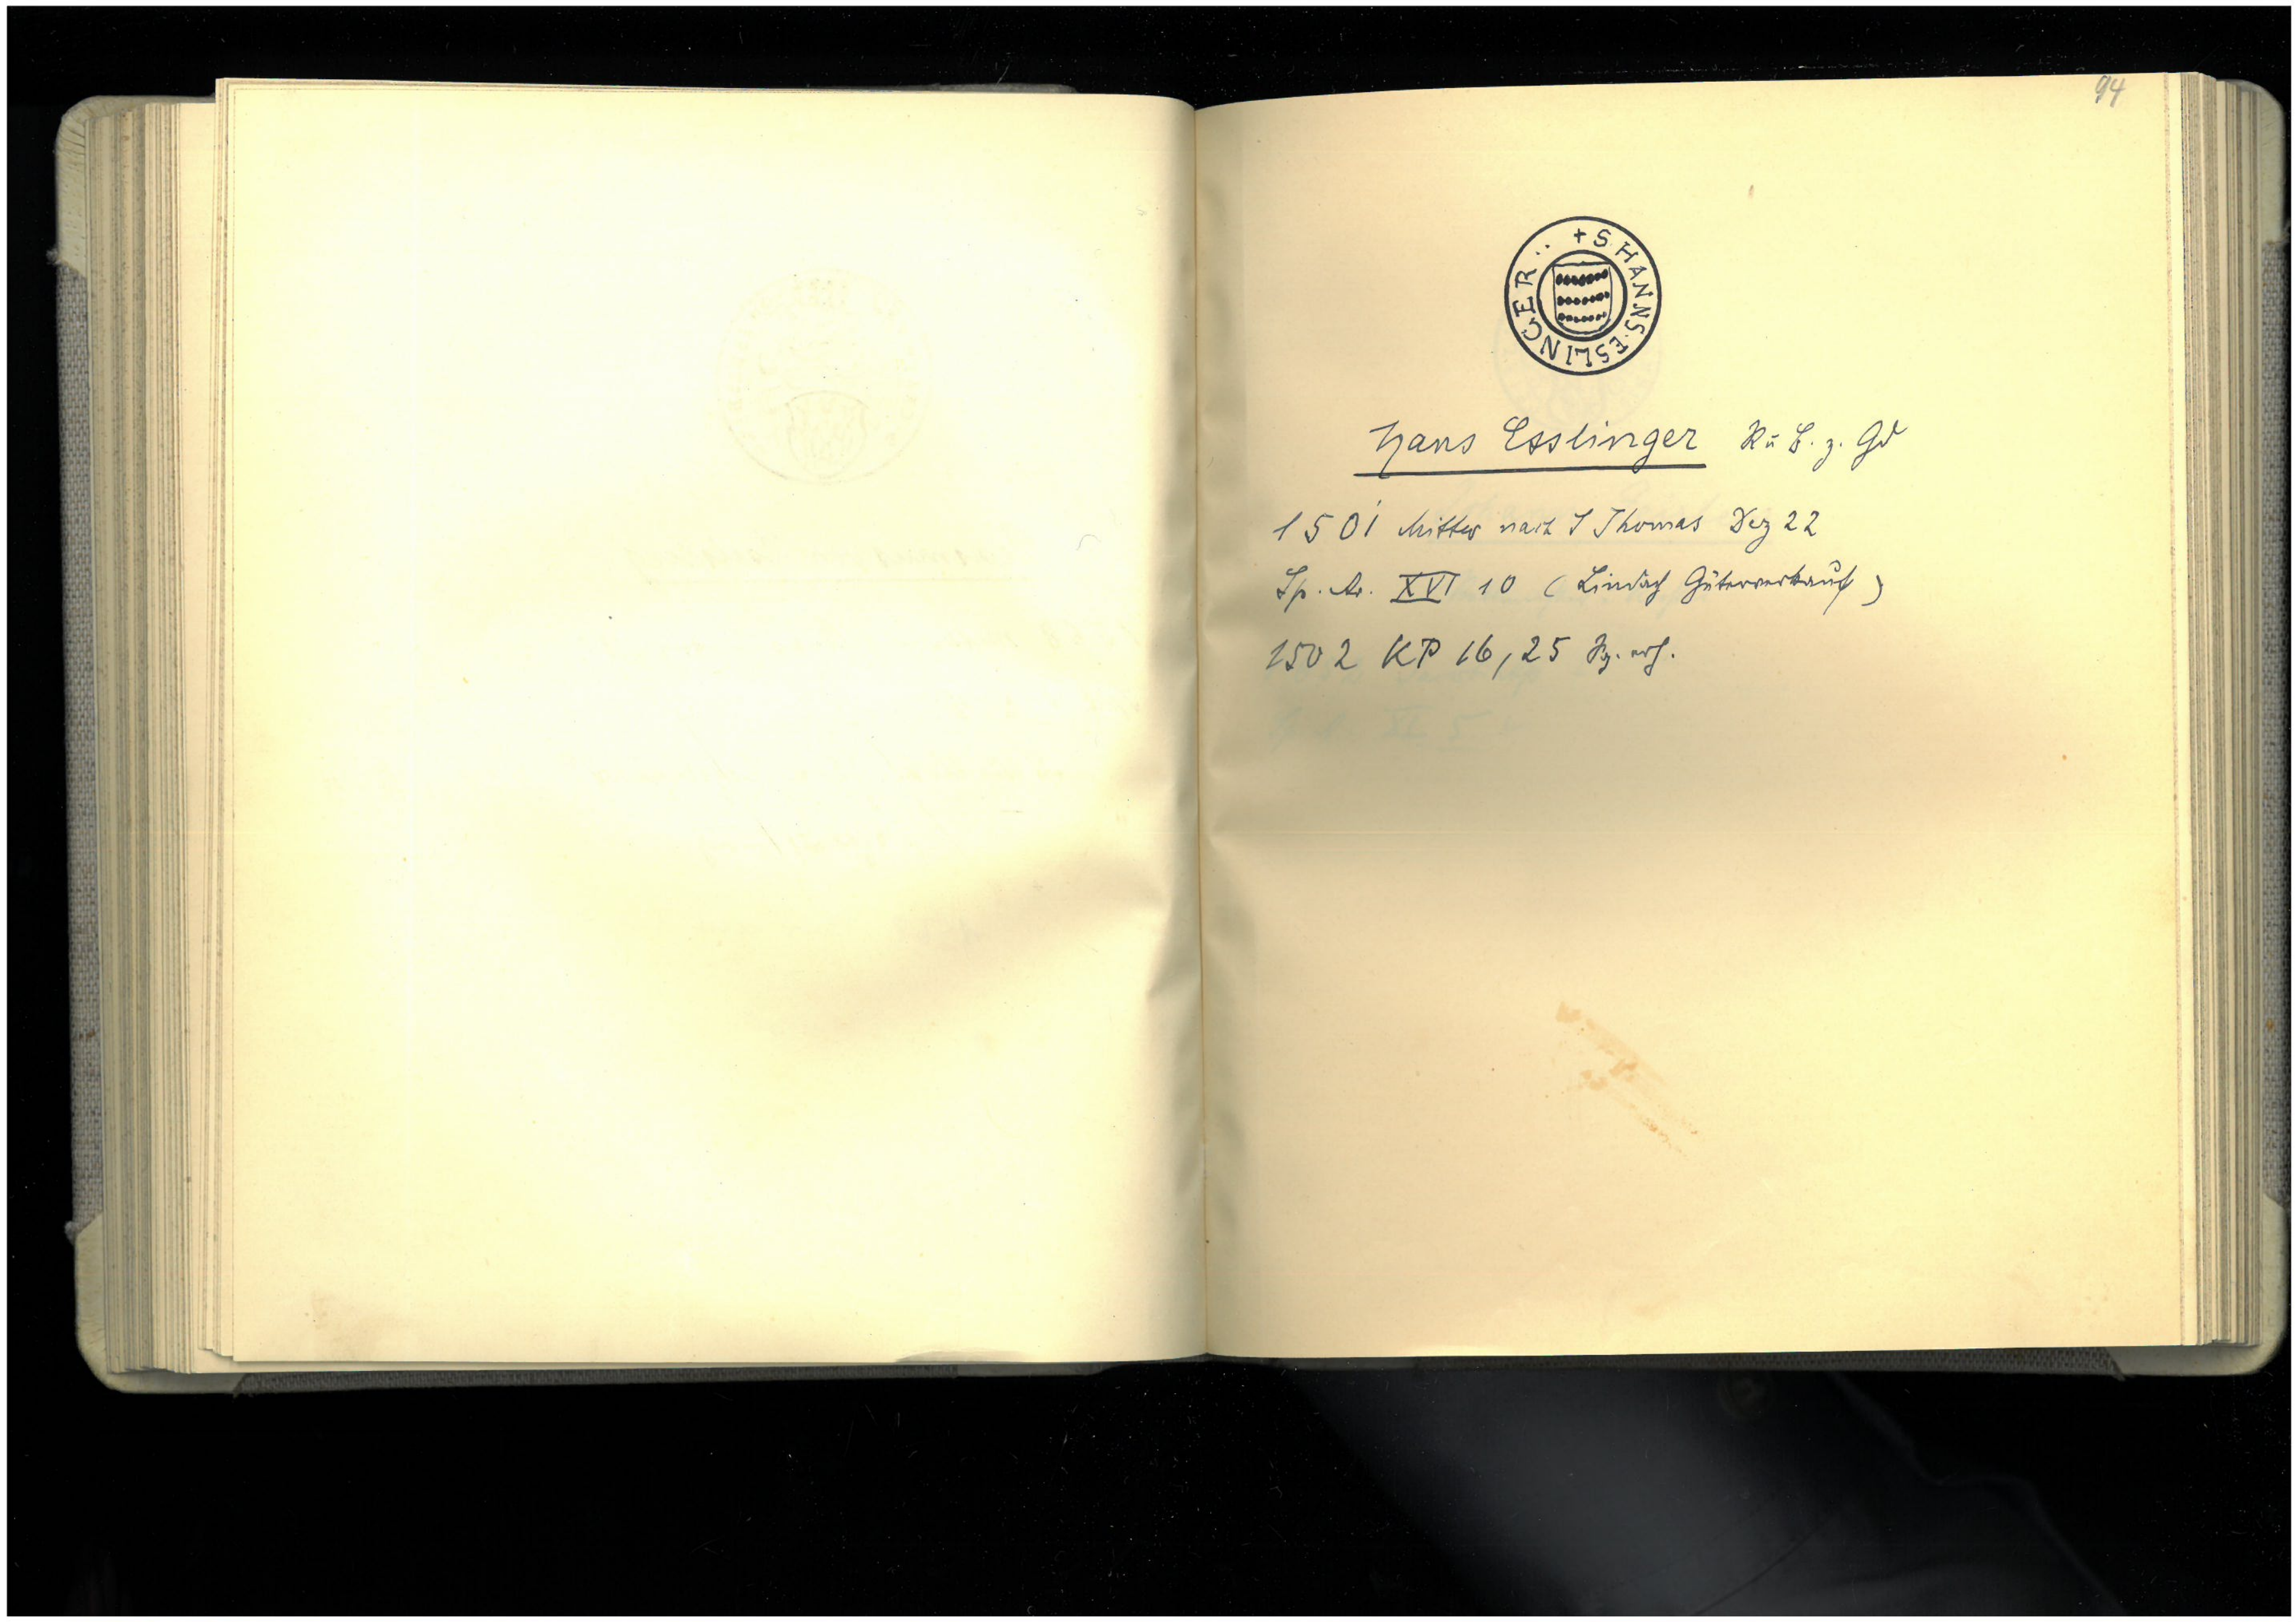 94
+ S. HANNS. ESLINGER :.
Hans Esslinger R u B. z. Gd
1501 Mittw nach S Thomas Dez 22
Sp. Ar. XVI 10 (Lindach Güterverkauf)
1502 KP 16, 25 Sg. erh.